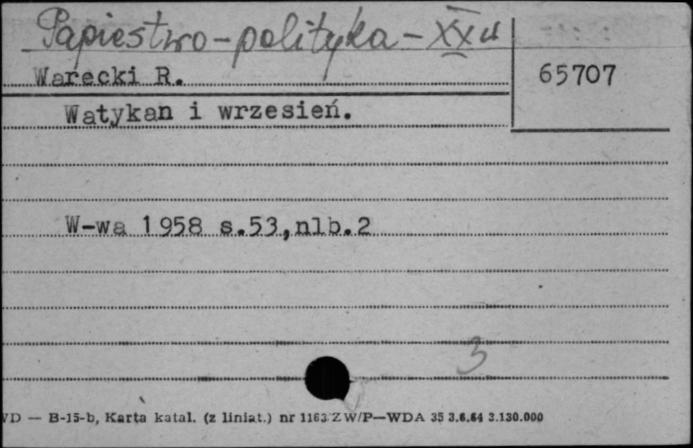 Papiestwo-polityka-XX w
Warecki R.
65707
Watykan i wrzesień.
W-wa 1958 s.53,nlb.2
3
VD — B-15-b, Karta katal. (z liniat.) nr 1163 ZW/P—WDA 35 3.6.64 3.130.000